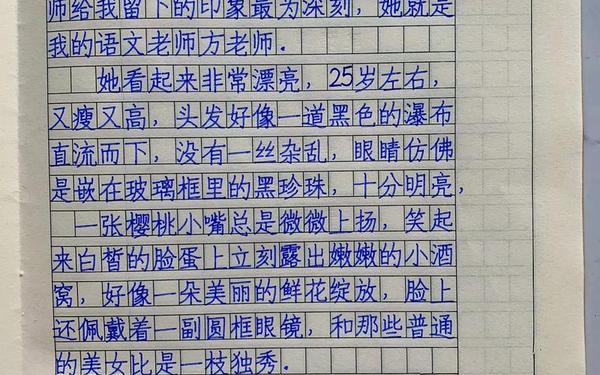 师给我留下的印象最为深刻，她就是
我的语文老师方老师．
她看起来非常漂亮，25岁左右，
又瘦又高，头发好像一道黑色的瀑布
直流而下，没有一丝杂乱，眼睛仿佛
是嵌在玻璃框里的黑珍珠，十分明亮，
一张樱桃小嘴总是微微上扬，笑起
来白皙的脸蛋上立刻露出嫩嫩的小酒
窝，好像一朵美丽的鲜花绽放，脸上
还佩戴着一副圆框眼镜，和那些普通
的美女比是一枝独秀．